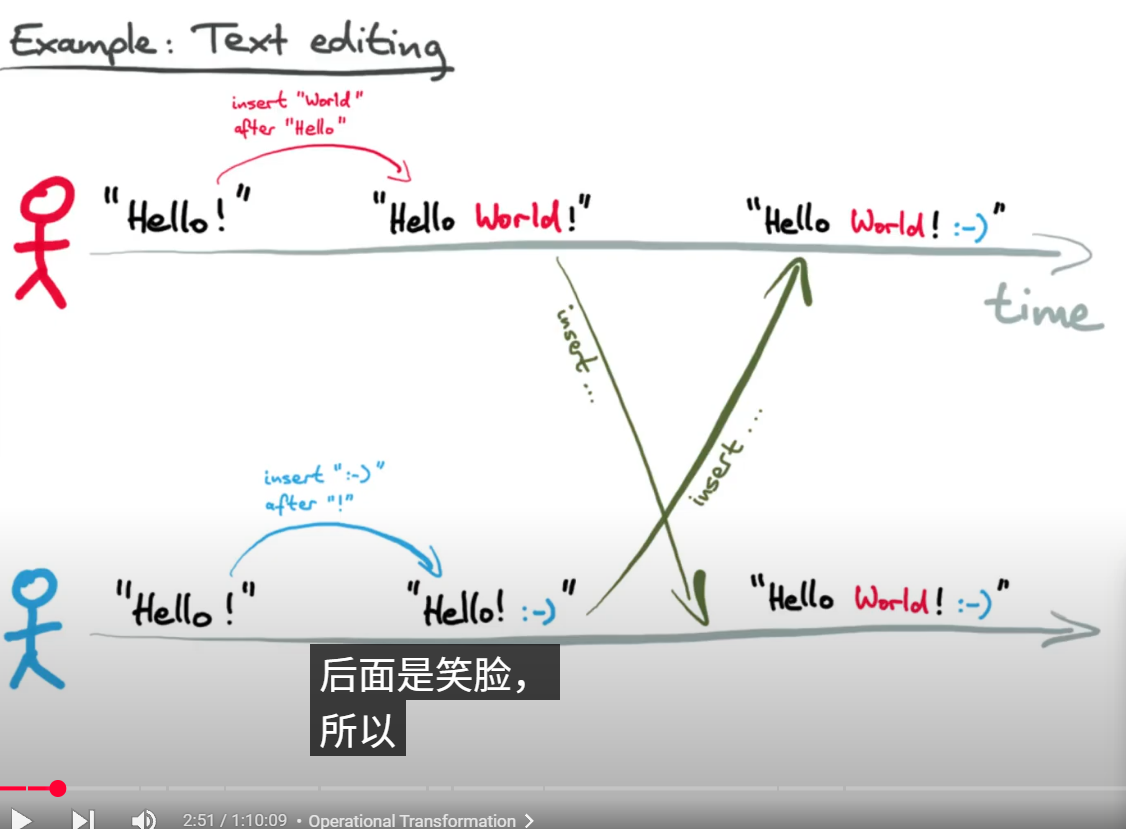 Example: Text editing
insert "World"
after "Hello"
"Hello!"
"Hello World!"
"Hello World! :-)"
time
insert ...
insert ....
insert ":-)"
after "!"
"Hello!"
"Hello! :-)"
"Hello World! :-)"
后面是笑脸，
所以
2:51 / 1:10:09 • Operational Transformation >